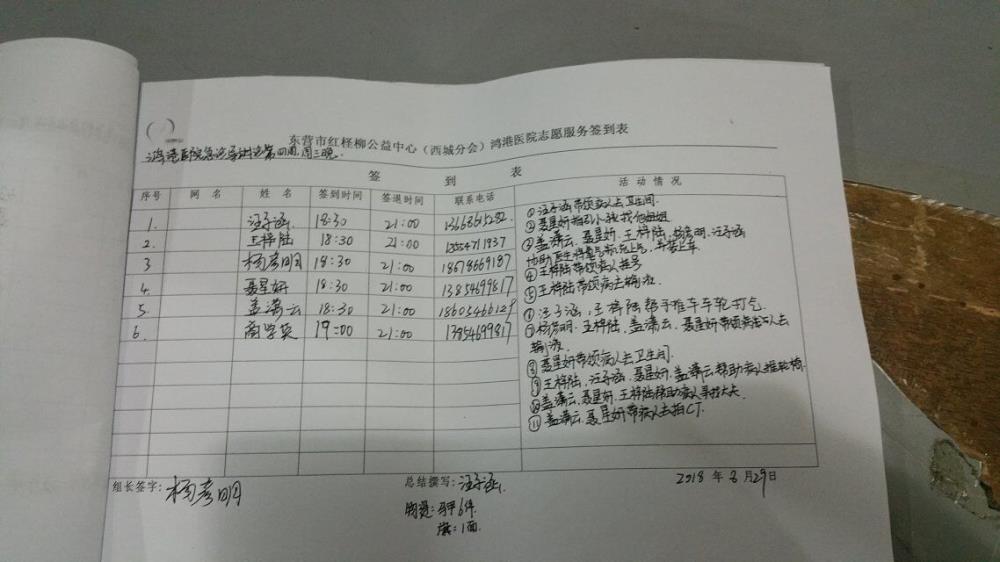 东营市红柽柳公益中心（西城分会）鸿港医院志愿服务签到表
鸿港医院急诊导诊第四周，周三晚.
签 到 表
序号 网 名 姓 名 签到时间 签退时间 联系电话 活 动 情 况
1. 汪子涵 18:30 21:00
2. 王梓陆 18:30 21:00
3 杨彦明 18:30 21:00 18678669187
4 聂星妍 18:30 21:00 13854699817
5. 盖潇云 18:30 21:00 18605466129
6. 商学英 19:00 21:00 13854699817
①汪子涵带领病人去卫生间.
②聂星妍指引小孩找他妞妞
③盖潇云、聂星妍、王梓陆、杨彦明、汪子涵
协助医生将氧气瓶充上气，并装上车
④王梓陆带领病人挂号
⑤王梓陆带领病去输液.
⑥汪子涵，王梓陆帮手推车车轮打气.
⑦杨彦明、王梓陆、盖潇云、聂星妍带领病人去
输液.
⑧聂星妍带领病人去卫生间.
⑨王梓陆，汪子涵、聂星妍、盖潇云帮助病人推轮椅.
⑩盖潇云、聂星妍、王梓陆帮助病人寻找大夫
⑪盖潇云、聂星妍带病人去拍CT.
组长签字：杨彦明 总结撰写：汪子涵. 2018 年 8 月 29 日
物资：马甲6件
旗：1面.